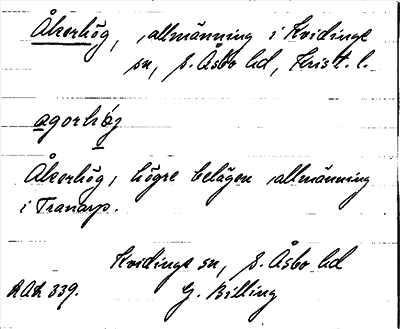 Åkerhög, allmänning i Kvidinge
sn, S. Åsbo hd, Krist. l.
agorhøg
Åkerhög, högre belägen allmänning
i Tranarp.
Kvidinge sn, S. Åsbo hd
AOR 339. G. Billing